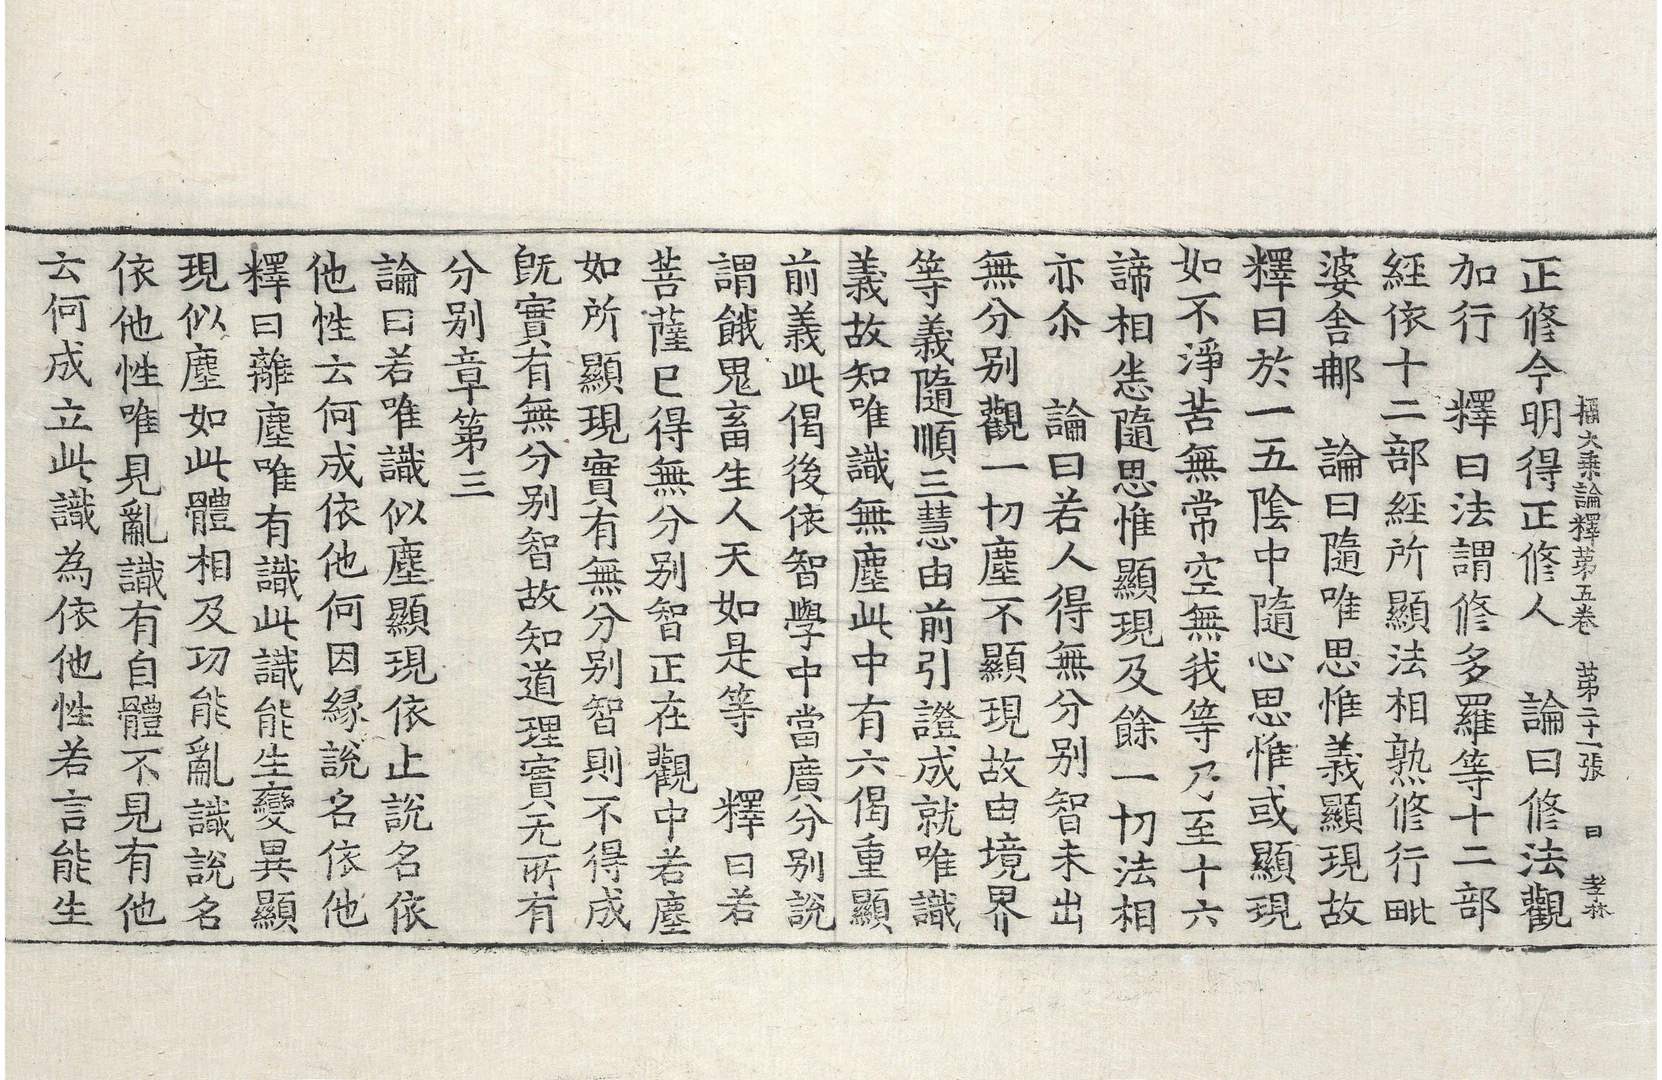 攝大乘論釋苐五卷 苐二十一張 日 孝林
正修今明得正修人 論曰修法觀
加行 釋曰法謂修多羅等十二部
經依十二部經所顯法相熟修行毗
婆舍那 論曰隨唯思惟義顯現故
釋曰於一五陰中隨心思惟或顯現
如不淨苦無常空無我等乃至十六
諦相恙隨思惟顯現及餘一切法相
亦尒 論曰若人得無分别智未出
無分别觀一切塵不顯現故由境界
等義隨順三慧由前引證成就唯識
義故知唯識無塵此中有六偈重顯
前義此偈後依智學中當廣分别說
謂餓鬼畜生人天如是等 釋曰若
菩薩已得無分别智正在觀中若塵
如所顯現實有無分别智則不得成
旣實有無分别智故知道理實无所有
分别章第三
論曰若唯識似塵顯現依止說名依
他性云何成依他何因緣說名依他
釋曰離塵唯有識此識能生變異顯
現似塵如此體相及功能亂識說名
依他性唯見亂識有自體不見有他
云何成立此識為依他性若言能生